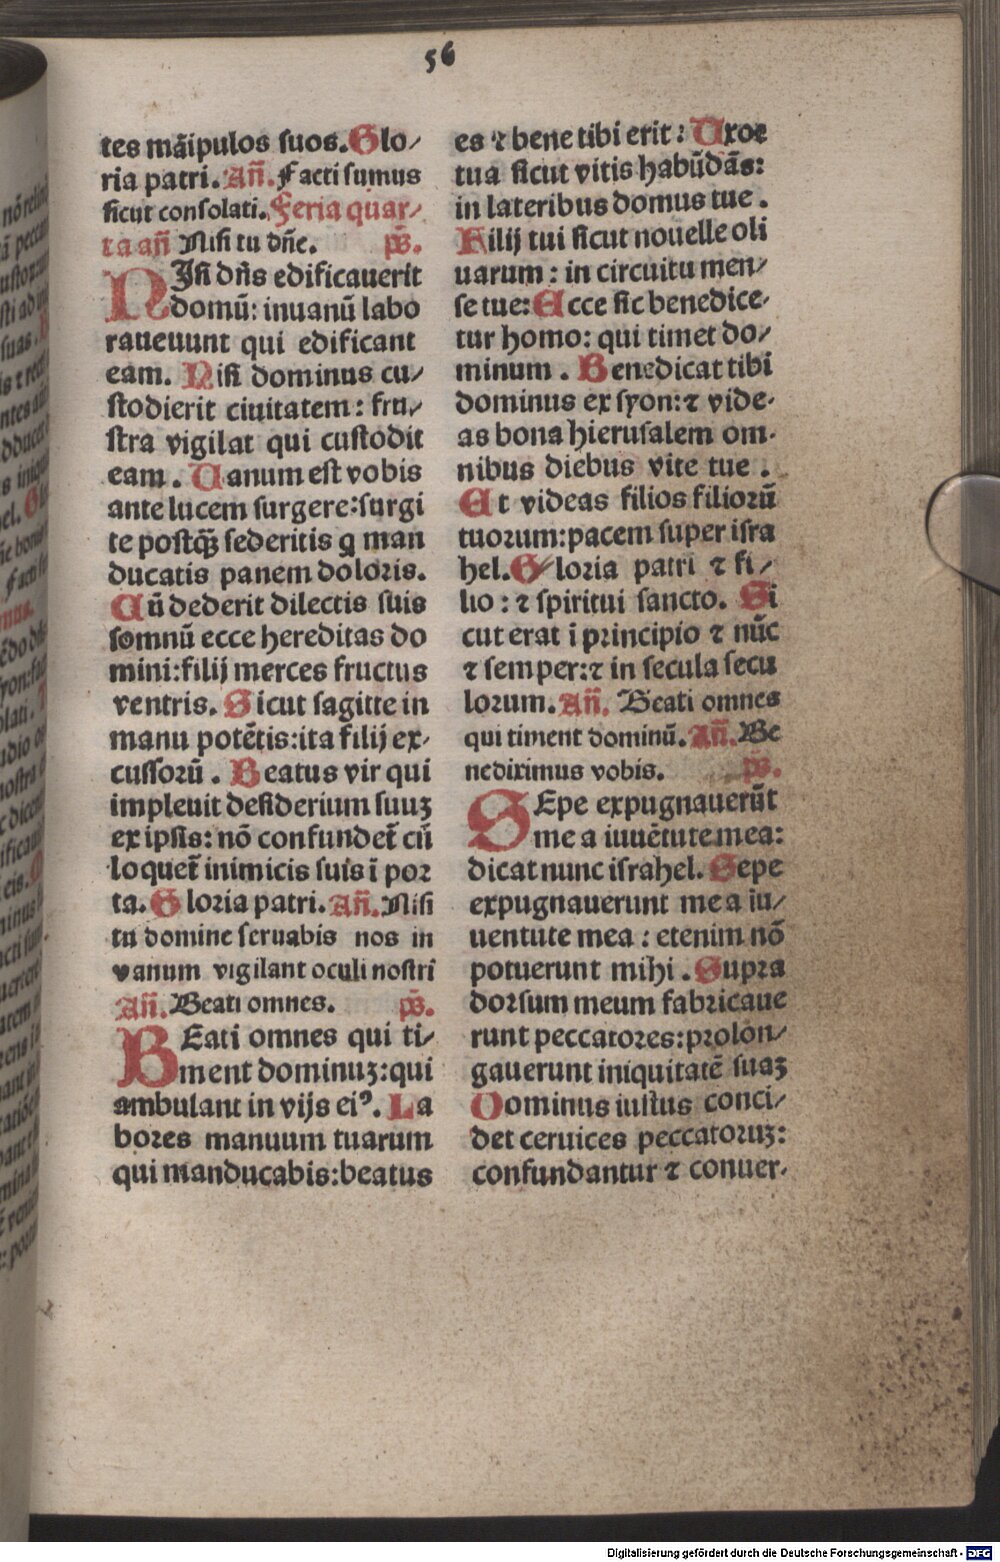 56
tes māipulos suos. Glo/
ria patri. Añ. Facti sumus
sicut consolati. Feria quar/
ta añ Nisi tu dñe. ps̄.
NIsi dñs edificauerit
domū: inuanū labo
raueuunt qui edificant
eam. Nisi dominus cu/
stodierit ciuitatem: fru/
stra vigilat qui custodit
eam. Uanum est vobis
ante lucem surgere: surgi
te postq̄ȝ sederitis q man
ducatis panem doloris.
Cū dederit dilectis suis
somnū ecce hereditas do
mini: filij merces fructus
ventris. Sicut sagitte in
manu potētis: ita filij ex-
cussorū. Beatus vir qui
impleuit desiderium suuȝ
ex ipsis: nō confundet̄ cū
loquet̄ inimicis suis ī por
ta. Gloria patri. Añ. Nisi
tu domine seruabis nos in
vanum vigilant oculi nostri
Añ. Beati omnes. ps̄.
BEati omnes qui ti/
ment dominuȝ: qui
ambulant in vijs eiꝰ. La
bores manuum tuarum
qui manducabis: beatus
es ⁊ bene tibi erit: Uxor
tua sicut vitis habūdās:
in lateribus domus tue.
Filij tui sicut nouelle oli
uarum: in circuitu men/
se tue: Ecce sic benedice-
tur homo: qui timet do/
minum. Benedicat tibi
dominus ex syon: ⁊ vide-
as bona hierusalem om-
nibus diebus vite tue.
Et videas filios filiorū
tuorum: pacem super isra
hel. Gloria patri ⁊ fi/
lio: ⁊ spiritui sancto. Si
cut erat ī principio ⁊ nūc
⁊ semper: ⁊ in secula secu
lorum. Añ. Beati omnes
qui timent dominū. Añ. Be
nediximus vobis. ps̄.
SEpe expugnauerūt
me a iuuētute mea:
dicat nunc israhel. Sepe
expugnauerunt me a iu/
uentute mea: etenim nō
potuerunt mihi. Supra
dorsum meum fabricaue
runt peccatores: prolon/
gauerunt iniquitatē suaȝ
Dominus iustus conci/
det ceruices peccatoruȝ:
confundantur ⁊ conuer-
Digitalisierung gefördert durch die Deutsche Forschungsgemeinschaft - DFG